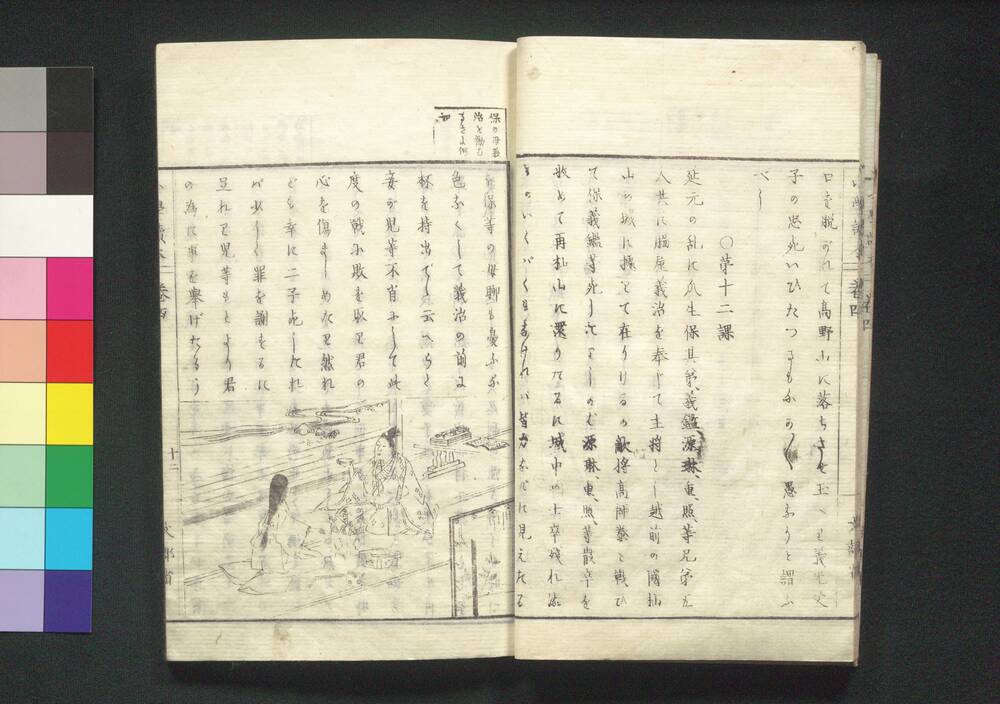 口を脱がれて高野山に落ちさせ玉へり義光父
子の忠死いひたつるもなかなか愚なりと謂ふ
べし
○第十二課
延元の乱に瓜生保其弟義鑑源琳重照等兄弟五
人共に脇屋義治を奉じて主将とし越前の国杣
山の城に據て在りけるが敵将高師泰と戦ひ
て保義鑑等死しけれバ源琳重照等敗卒を
收めて再杣山に還りたるに城中の士卒残れる
ものいくバくもなけれバ皆力なげに見えたる
を保等の母聊も憂ふる
色なくして義治の前に
杯を持出でて云へらく
妾が児等不肖にして此
度の戦に敗を取り君の
心を傷ましめたり然れ
ども幸に二子死したれ
バ少しく罪を謝するに
足れり児等もとより君
の為に事を挙げたるう
保の母義
治を勧む
十二
文部省